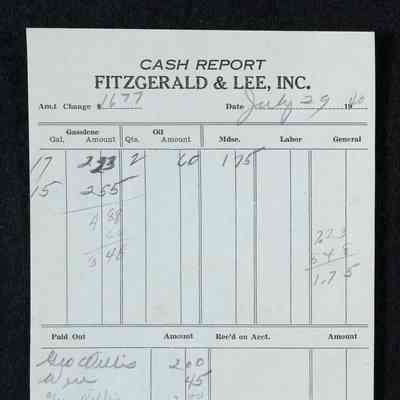 CASH REPORT
FITZGERALD & LEE, INC.
Am't Change $ 1677 Date July 29 1940
Gasolene Oil
Gal. Amount Qts. Amount Mdse. Labor General
17 2 23 2 60 1 75
15 2 55
4 88
60
5 48
2.23
1.75
Paid Out Amount Rec'd on Acct. Amount
Geo Willis 2 00
45